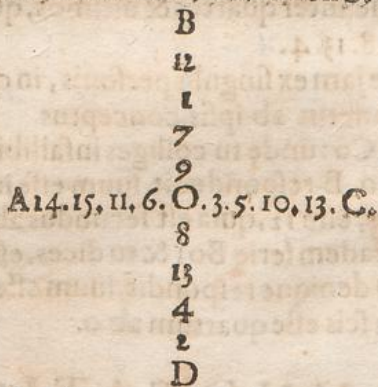 B
12
1
7
9
A14.15.11.6.O.3.5.10.13.C.
8
13
4
2
D